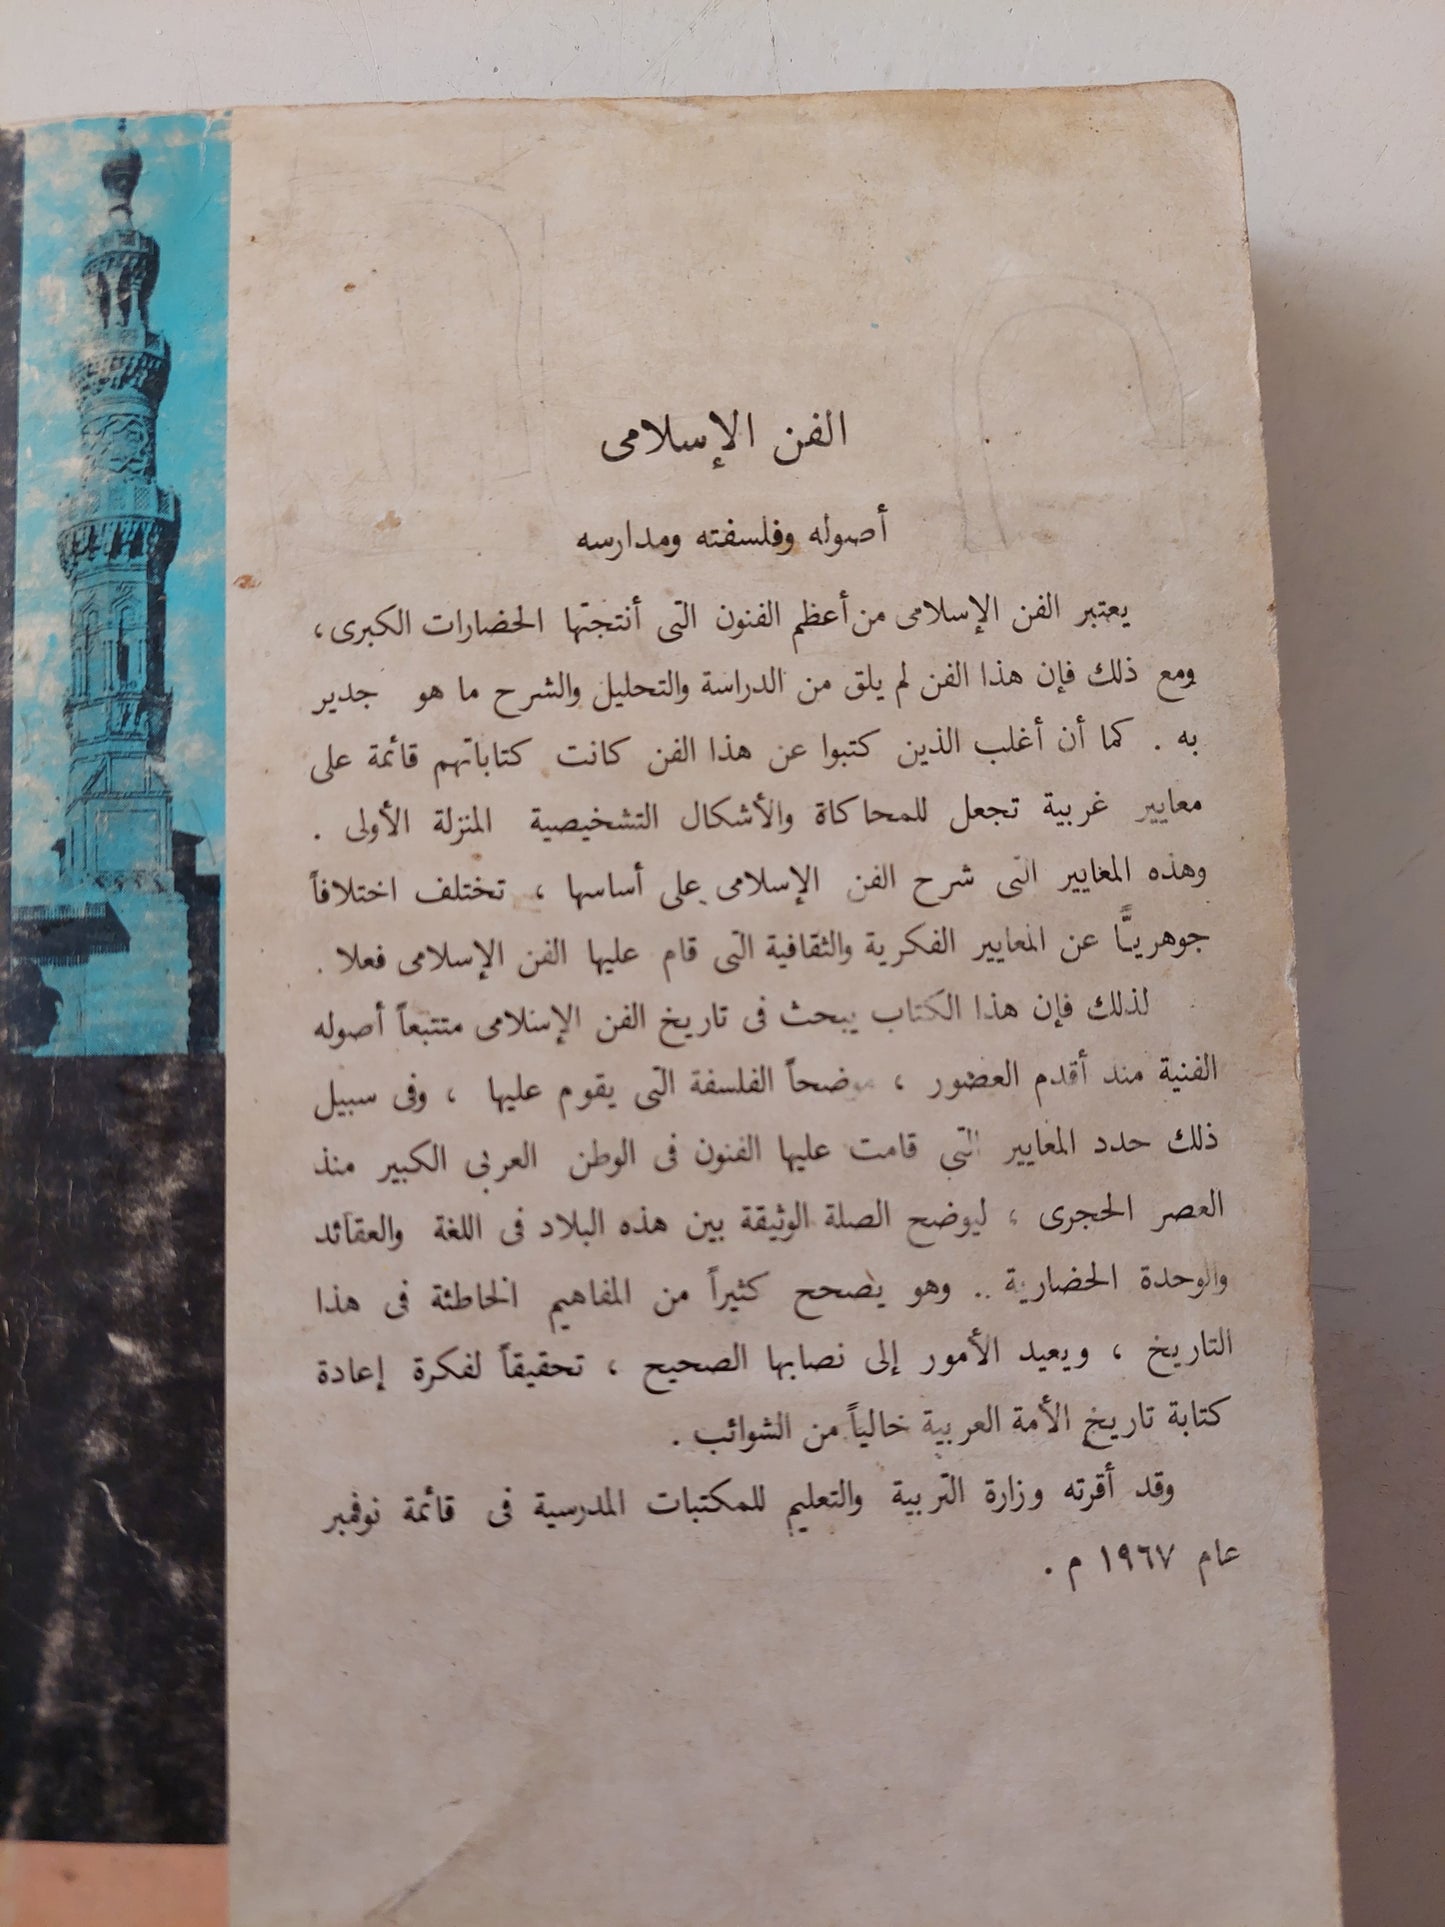 الفن الإسلامى
أصوله وفلسفته ومدارسه
يعتبر الفن الإسلامى من أعظم الفنون التى أنتجتها الحضارات الكبرى ،
ومع ذلك فإن هذا الفن لم يلق من الدراسة والتحليل والشرح ما هو جدير
به . كما أن أغلب الذين كتبوا عن هذا الفن كانت كتاباتهم قائمة على
معايير غربية تجعل للمحاكاة والأشكال التشخيصية المنزلة الأولى .
وهذه المعايير التى شرح الفن الإسلامى على أساسها ، تختلف اختلافاً
جوهريًّا عن المعايير الفكرية والثقافية التى قام عليها الفن الإسلامى فعلا .
لذلك فإن هذا الكتاب يبحث فى تاريخ الفن الإسلامى متتبعاً أصوله
الفنية منذ أقدم العصور ، موضحاً الفلسفة التى يقوم عليها ، وفى سبيل
ذلك حدد المعايير التى قامت عليها الفنون فى الوطن العربى الكبير منذ
العصر الحجرى ، ليوضح الصلة الوثيقة بين هذه البلاد فى اللغة والعقائد
والوحدة الحضارية .. وهو يصحح كثيراً من المفاهيم الخاطئة فى هذا
التاريخ ، ويعيد الأمور إلى نصابها الصحيح ، تحقيقاً لفكرة إعادة
كتابة تاريخ الأمة العربية خالياً من الشوائب .
وقد أقرته وزارة التربية والتعليم للمكتبات المدرسية فى قائمة نوفمبر
عام ١٩٦٧ م .